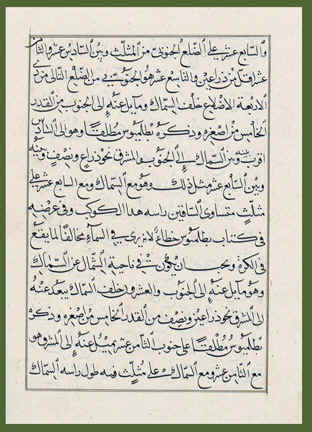 والسابع عشر على الضلع الجنوبي من المثلث وبين السادس عشر والثا
عشر اقل من ذراعين والتاسع عشر هو الجنوبي من الضلع التالي من ذي
الاربعة الاضلاع خلف السماك ومايل عنه الى الجنوب من القدر
الخامس من اصغره وذكره بطلميوس مطلقا وهو الى السادس
اقرب من السماك الى الجنوب والمشرق نحو ذراع ونصف وبينه
وبين السابع عشر مثل ذلك وهو مع السماك ومع السابع عشر على
مثلث متساوى الساقين راسه هذا الكوكب وفى عرضه
فى كتاب بطلميوس خطا لانه يرى فى السماء مخالفا لما يقع
فى الكرة ويجب ان يكون فى ناحية الشمال عن السماك
وهو مايل عنه الى الجنوب والعشرون خلف السماك يبعد عنه
الى المشرق نحو ذراعين ونصف من القدر الخامس من اصغره وذكره
بطلميوس مطلقا على جنوب الثامن عشر يميل عنه الى المشرق وهو
مع الثامن عشر ومع السماك على مثلث فيه طول راسه السماك